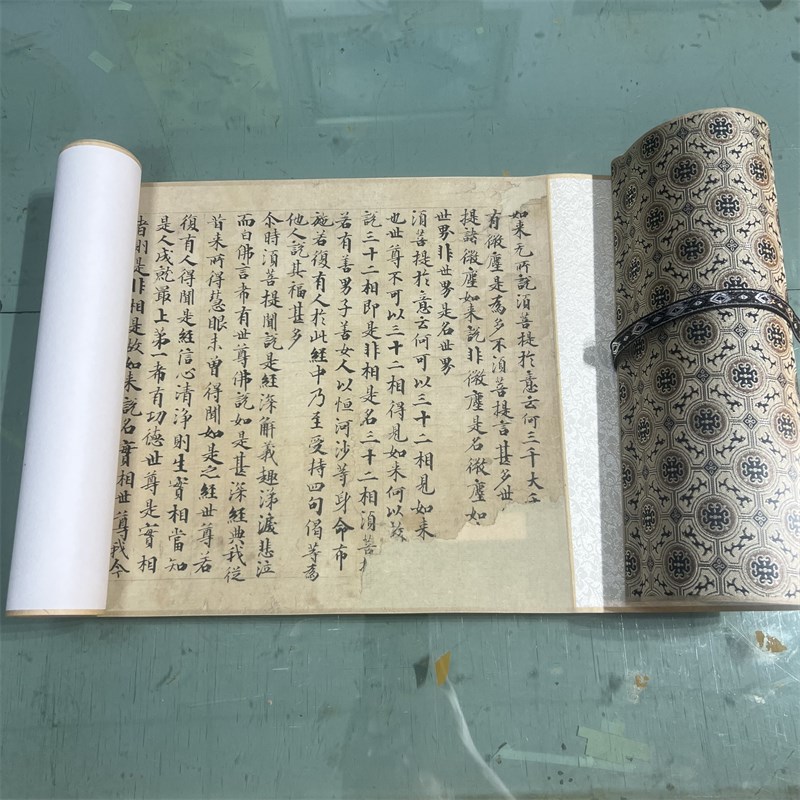 如来无所說須菩提於意云何三千大千
有微塵是為多不須菩提言甚多世
提諸微塵如来說非微塵是名微塵如
世界非世界是名世界
須菩提於意云何可以三十二相見如来
也世尊不可以三十二相得見如来何以故
說三十二相即是非相是名三十二相須菩
若有善男子善女人以恒河沙等身命布
施若復有人於此經中乃至受持四句偈等為
他人說其福甚多
尒時須菩提聞說是經深解義趣涕淚悲泣
而白佛言希有世尊佛說如是甚深經典我從
昔来所得慧眼未曾得聞如是之經世尊若
復有人得聞是經信心清淨則生實相當知
是人成就最上第一希有功德世尊是實相
者則是非相是故如来說名實相世尊我今